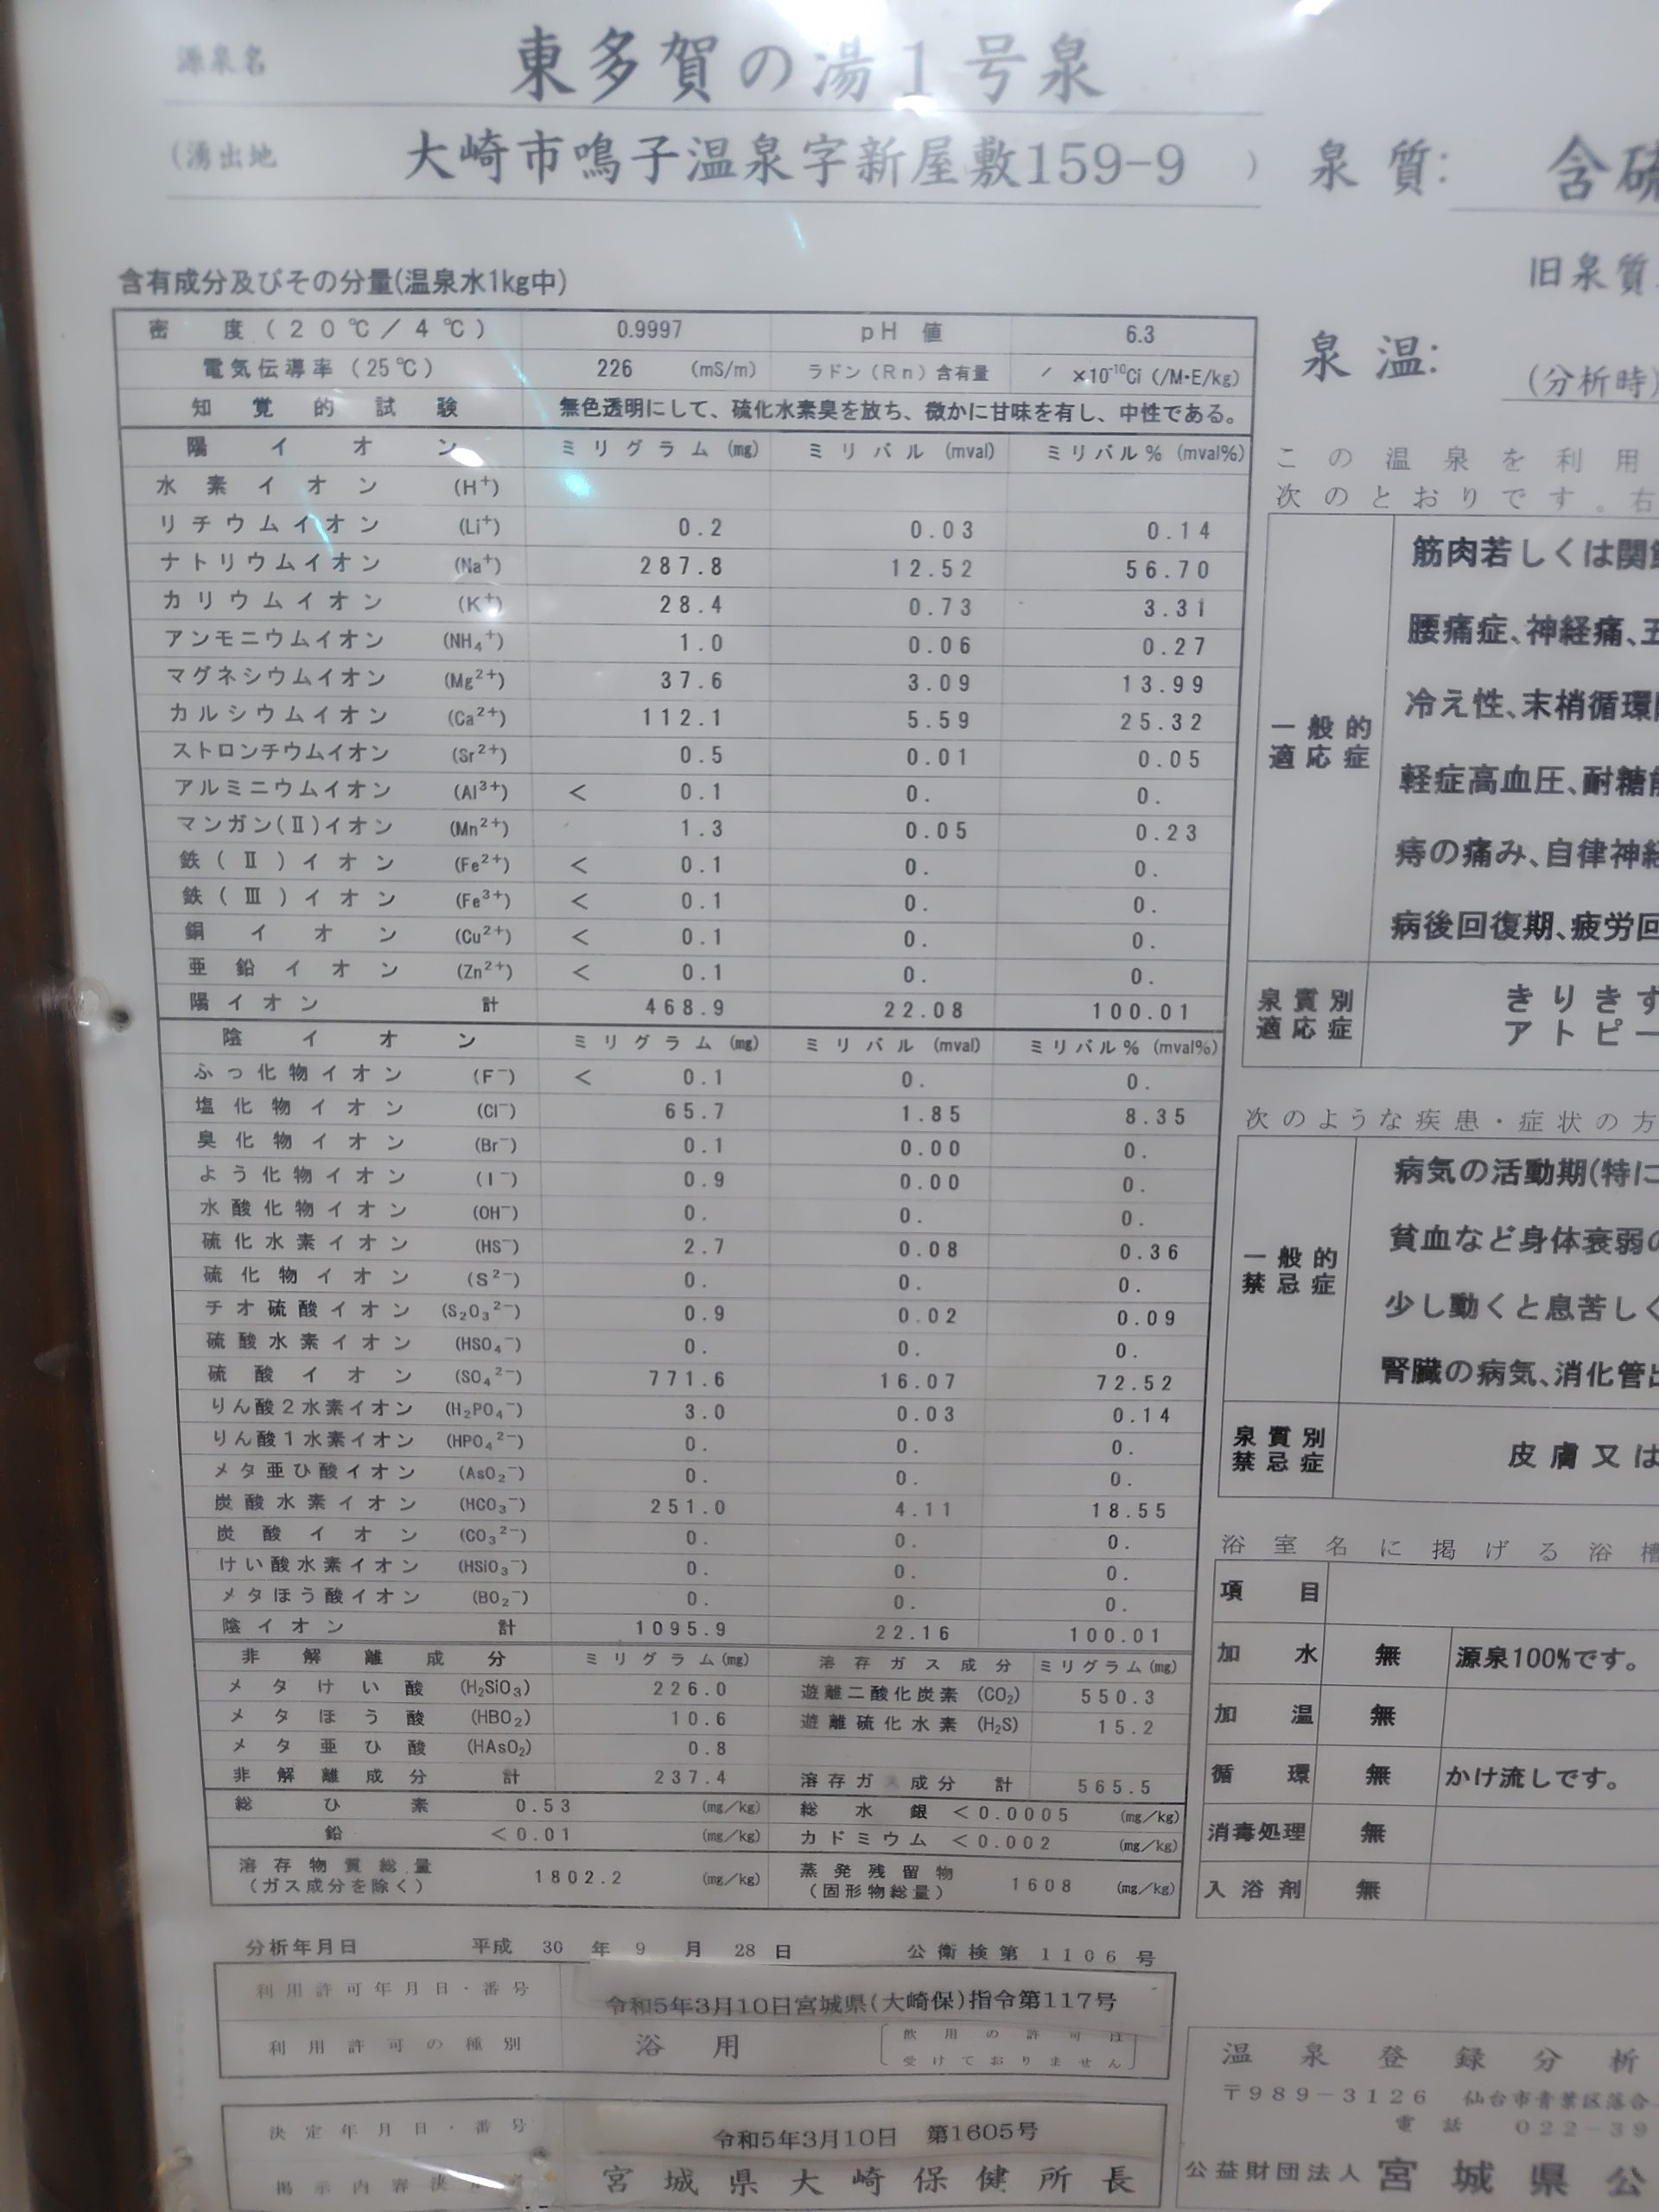 源泉名 東多賀の湯1号泉
(湧出地 大崎市鳴子温泉字新屋敷159-9 )
泉質: 含硫
旧泉質
泉温:
(分析時)
含有成分及びその分量(温泉水1kg中)
密度(20℃/4℃) 0.9997 pH値 6.3
電気伝導率(25℃) 226 (mS/m) ラドン(Rn)含有量 / ×10⁻¹⁰Ci(/M・E/kg)
知覚的試験 無色透明にして、硫化水素臭を放ち、微かに甘味を有し、中性である。
陽イオン ミリグラム(mg) ミリバル(mval) ミリバル%(mval%)
水素イオン (H⁺)
リチウムイオン (Li⁺) 0.2 0.03 0.14
ナトリウムイオン (Na⁺) 287.8 12.52 56.70
カリウムイオン (K⁺) 28.4 0.73 3.31
アンモニウムイオン (NH₄⁺) 1.0 0.06 0.27
マグネシウムイオン (Mg²⁺) 37.6 3.09 13.99
カルシウムイオン (Ca²⁺) 112.1 5.59 25.32
ストロンチウムイオン (Sr²⁺) 0.5 0.01 0.05
アルミニウムイオン (Al³⁺) < 0.1 0. 0.
マンガン(Ⅱ)イオン (Mn²⁺) 1.3 0.05 0.23
鉄(Ⅱ)イオン (Fe²⁺) < 0.1 0. 0.
鉄(Ⅲ)イオン (Fe³⁺) < 0.1 0. 0.
銅イオン (Cu²⁺) < 0.1 0. 0.
亜鉛イオン (Zn²⁺) < 0.1 0. 0.
陽イオン 計 468.9 22.08 100.01
陰イオン ミリグラム(mg) ミリバル(mval) ミリバル%(mval%)
ふっ化物イオン (F⁻) < 0.1 0. 0.
塩化物イオン (Cl⁻) 65.7 1.85 8.35
臭化物イオン (Br⁻) 0.1 0.00 0.
よう化物イオン (I⁻) 0.9 0.00 0.
水酸化物イオン (OH⁻) 0. 0. 0.
硫化水素イオン (HS⁻) 2.7 0.08 0.36
硫化物イオン (S²⁻) 0. 0. 0.
チオ硫酸イオン (S₂O₃²⁻) 0.9 0.02 0.09
硫酸水素イオン (HSO₄⁻) 0. 0. 0.
硫酸イオン (SO₄²⁻) 771.6 16.07 72.52
りん酸2水素イオン (H₂PO₄⁻) 3.0 0.03 0.14
りん酸1水素イオン (HPO₄²⁻) 0. 0. 0.
メタ亜ひ酸イオン (AsO₂⁻) 0. 0. 0.
炭酸水素イオン (HCO₃⁻) 251.0 4.11 18.55
炭酸イオン (CO₃²⁻) 0. 0. 0.
けい酸水素イオン (HSiO₃⁻) 0. 0. 0.
メタほう酸イオン (BO₂⁻) 0. 0. 0.
陰イオン 計 1095.9 22.16 100.01
非解離成分 ミリグラム(mg) 溶存ガス成分 ミリグラム(mg)
メタけい酸 (H₂SiO₃) 226.0 遊離二酸化炭素 (CO₂) 550.3
メタほう酸 (HBO₂) 10.6 遊離硫化水素 (H₂S) 15.2
メタ亜ひ酸 (HAsO₂) 0.8
非解離成分 計 237.4 溶存ガス成分 計 565.5
総ひ素 0.53 (mg/kg) 総水銀 <0.0005 (mg/kg)
鉛 <0.01 (mg/kg) カドミウム <0.002 (mg/kg)
溶存物質総量 1802.2 (mg/kg) 蒸発残留物 1608 (mg/kg)
(ガス成分を除く) (固形物総量)
分析年月日 平成 30 年 9 月 28 日 公衛検第1106号
利用許可年月日・番号 令和5年3月10日宮城県(大崎保)指令第117号
利用許可の種別 浴用 飲用の許可は
受けておりません
決定年月日・番号 令和5年3月10日 第1605号
掲示内容決 者 宮城県大崎保健所長
この温泉を利用
次のとおりです。右
一般的
適応症
筋肉若しくは関節
腰痛症、神経痛、五
冷え性、末梢循環
軽症高血圧、耐糖能
痔の痛み、自律神経
病後回復期、疲労回
泉質別
適応症
きりきず
アトピー
次のような疾患・症状の方
一般的
禁忌症
病気の活動期(特に
貧血など身体衰弱の
少し動くと息苦しく
腎臓の病気、消化管出
泉質別
禁忌症
皮膚又は
浴室名に掲げる浴槽
項目
加水 無 源泉100%です。
加温 無
循環 無 かけ流しです。
消毒処理 無
入浴剤 無
温泉登録分析
〒989-3126 仙台市青葉区落合
電話 022-39
公益財団法人 宮城県公